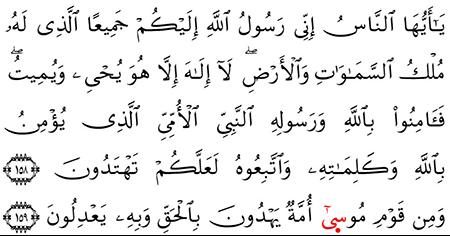 يَٰٓأَيُّهَا ٱلنَّاسُ إِنِّى رَسُولُ ٱللَّهِ إِلَيْكُمْ جَمِيعًا ٱلَّذِى لَهُۥ
مُلْكُ ٱلسَّمَٰوَٰتِ وَٱلْأَرْضِۖ لَآ إِلَٰهَ إِلَّا هُوَ يُحْىِۦ وَيُمِيتُۖ
فَـَٔامِنُوا۟ بِٱللَّهِ وَرَسُولِهِ ٱلنَّبِىِّ ٱلْأُمِّىِّ ٱلَّذِى يُؤْمِنُ
بِٱللَّهِ وَكَلِمَٰتِهِۦ وَٱتَّبِعُوهُ لَعَلَّكُمْ تَهْتَدُونَ ١٥٨
وَمِن قَوْمِ مُوسَىٰٓ أُمَّةٌ يَهْدُونَ بِٱلْحَقِّ وَبِهِۦ يَعْدِلُونَ ١٥٩